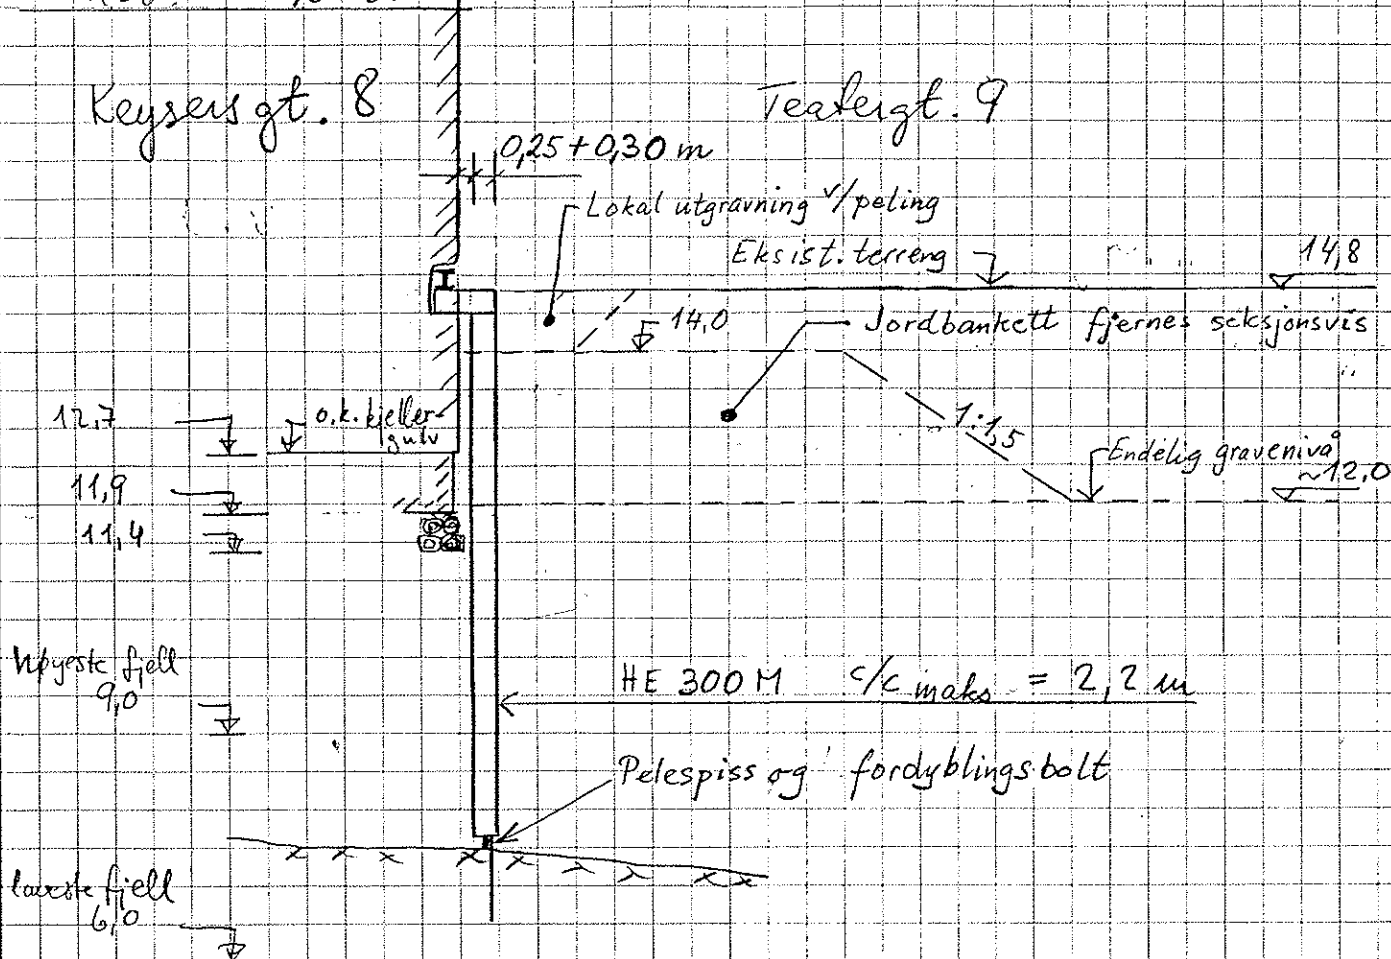 Keysers gt. 8
Teatergt. 9
0,25 + 0,30 m
Lokal utgravning v/peling
Eksist. terreng
14,8
14,0
Jordbankett fjernes seksjonsvis
12,7
o.k. kjeller-
gulv
1:1,5
Endelig gravenivå
~12,0
11,9
11,4
Høyeste fjell
9,0
HE 300 M c/c maks = 2,2 m
Pelespiss og fordyblingsbolt
laveste fjell
6,0